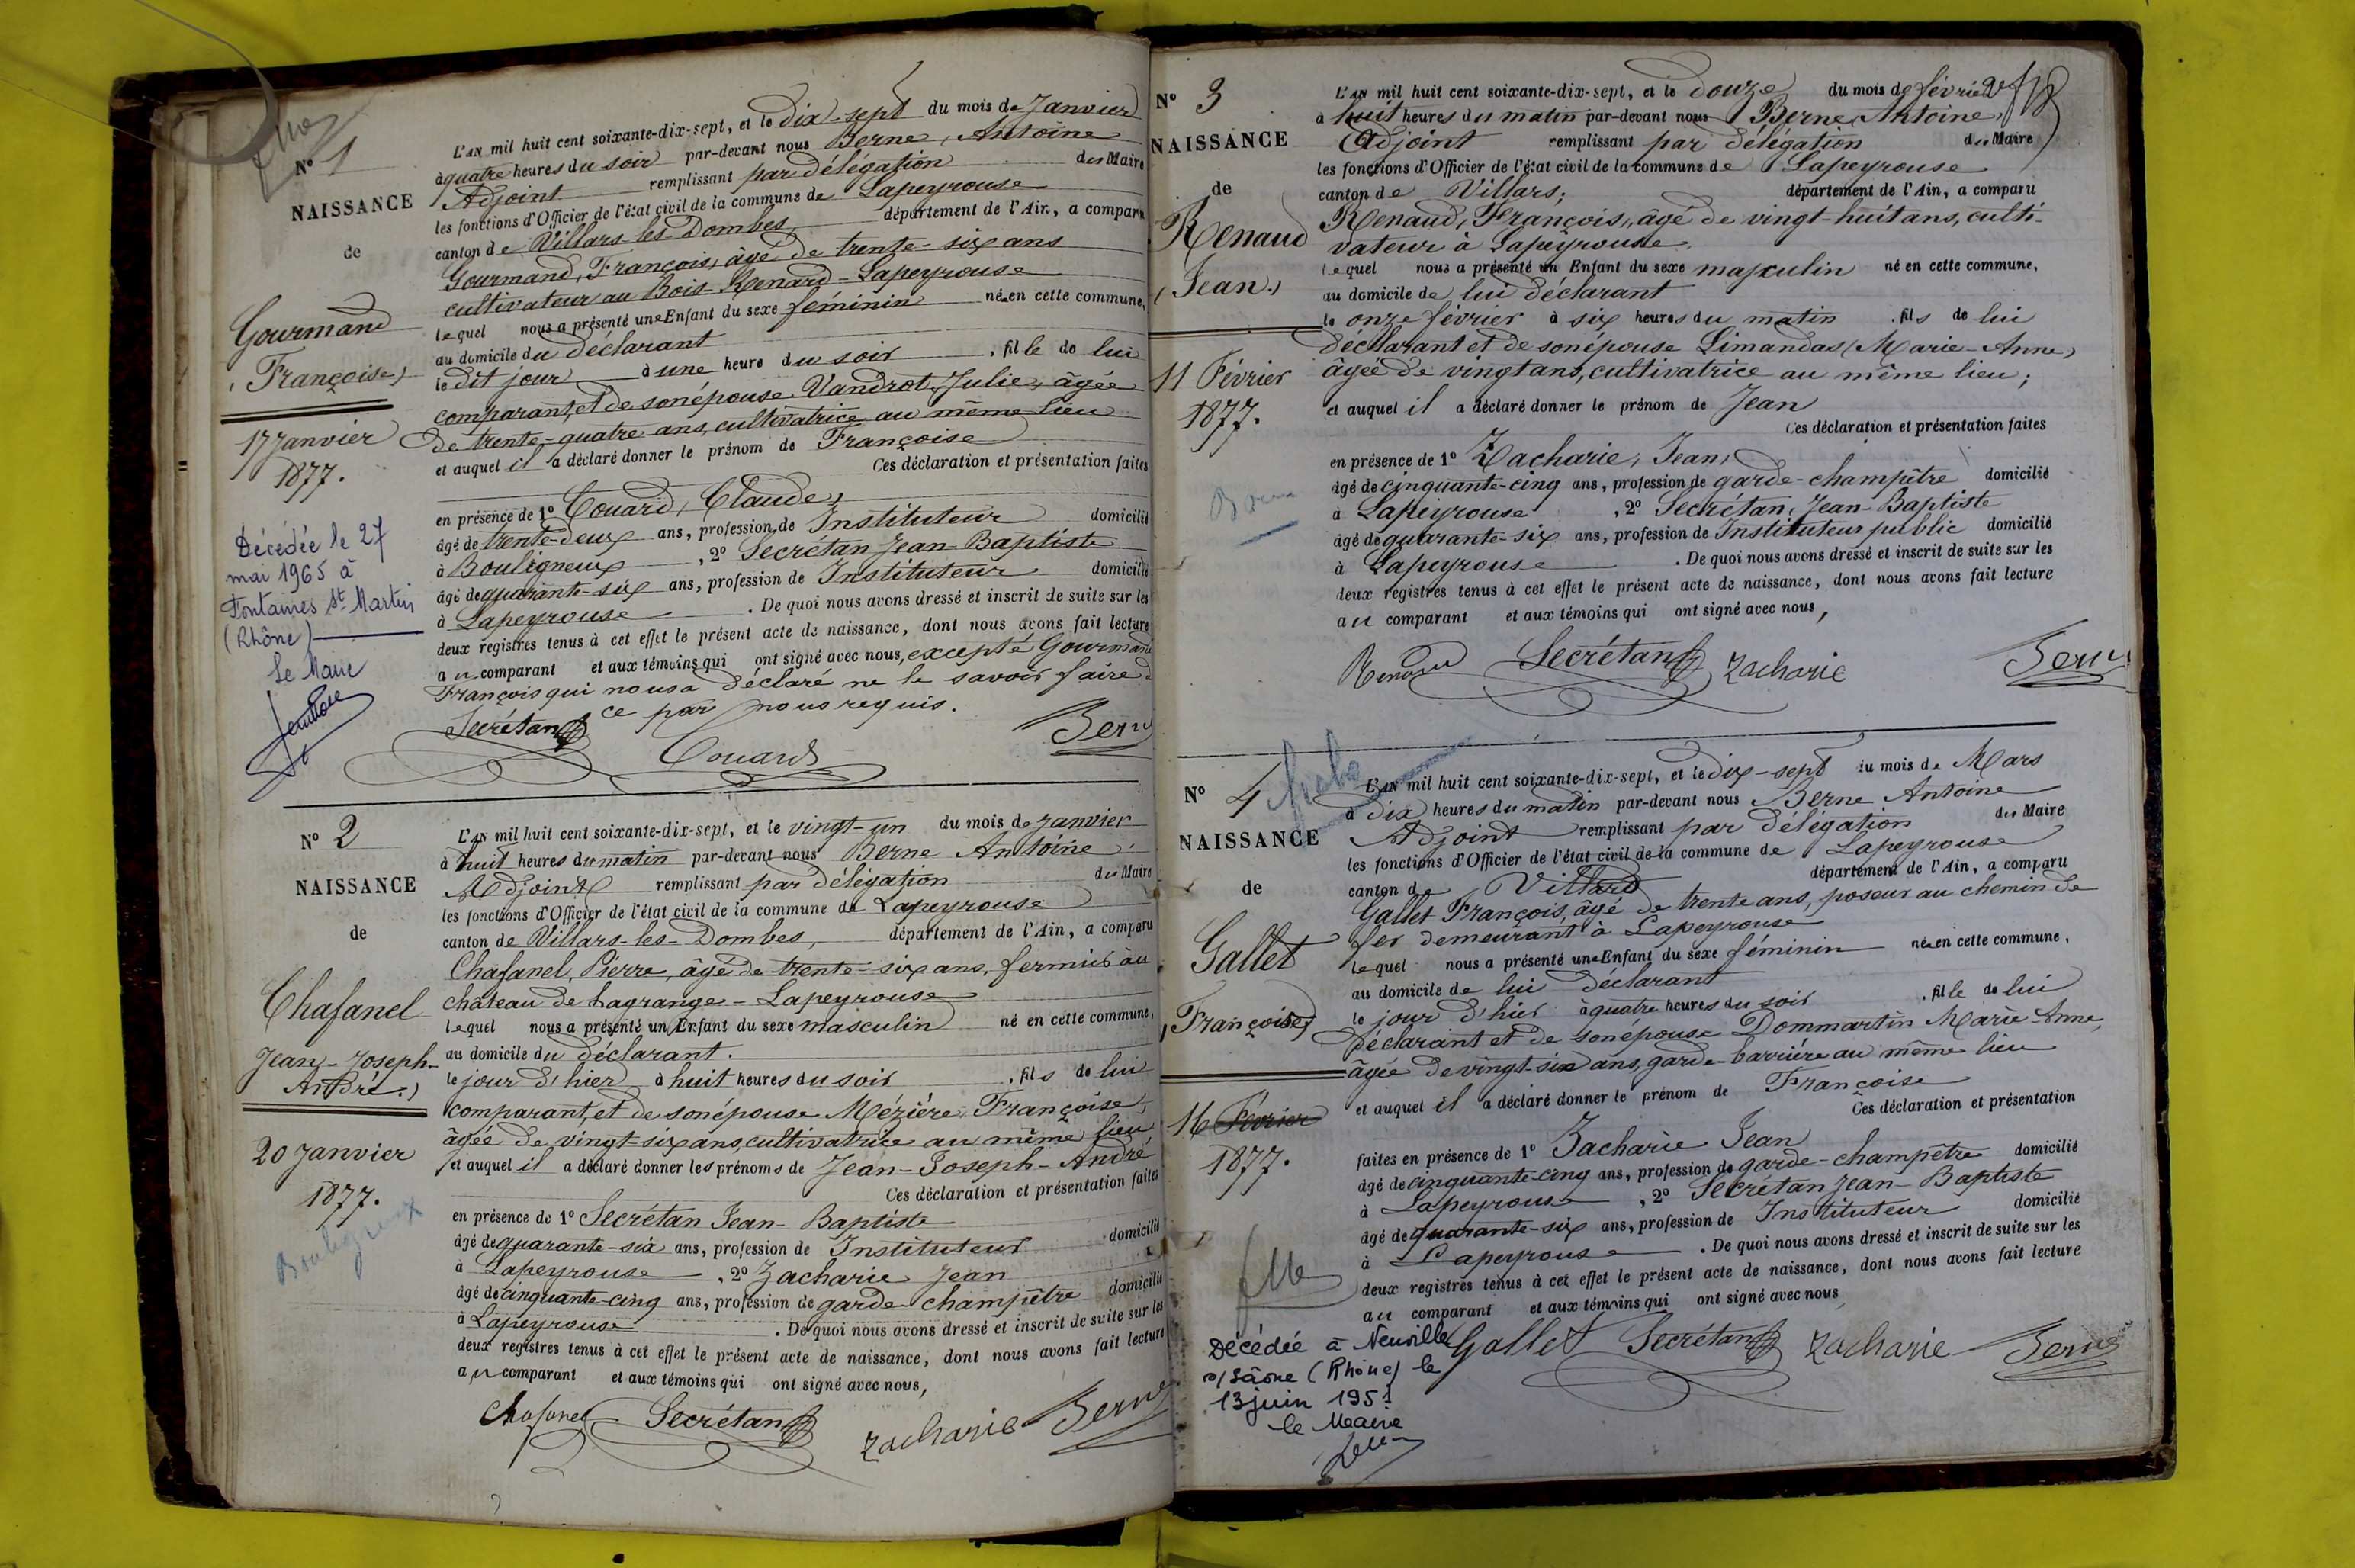 N° 1
NAISSANCE
de
Gourmand
(Françoise)
17 Janvier
1877.
Décédée le 27
mai 1965 à
Fontaines St Martin
(Rhône)
Le Maire
L'AN mil huit cent soixante-dix-sept, et le dix-sept du mois de Janvier
à quatre heures du soir par-devant nous Berne, Antoine
Adjoint remplissant par délégation du Maire
les fonctions d'Officier de l'état civil de la commune de Lapeyrouse
canton de Villars-les-Dombes, département de l'Ain, a comparu
Gourmand, François, âgé de trente-six ans
cultivateur au Bois-Renard-Lapeyrouse
lequel nous a présenté une Enfant du sexe féminin née en cette commune,
au domicile du déclarant
le dit jour à une heure du soir, fille de lui
comparant, et de son épouse Vandrot, Julie, âgée
de trente-quatre ans, cultivatrice au même lieu
et auquel il a déclaré donner le prénom de Françoise
Ces déclaration et présentation faites
en présence de 1° Couard, Claude,
âgé de trente-deux ans, profession de Instituteur domicilié
à Bouligneux, 2° Secrétan Jean-Baptiste
âgé de quarante-six ans, profession de Instituteur domicilié
à Lapeyrouse. De quoi nous avons dressé et inscrit de suite sur les
deux registres tenus à cet effet le présent acte de naissance, dont nous avons fait lecture
au comparant et aux témoins qui ont signé avec nous, excepté Gourmand
François qui nous a déclaré ne le savoir faire
ce par nous requis.
Secrétan Couard Berne
N° 2
NAISSANCE
de
Chafanel
Jean-Joseph-
André.)
20 Janvier
1877.
Bouligneux
L'AN mil huit cent soixante-dix-sept, et le vingt-un du mois de Janvier
à huit heures du matin par-devant nous Berne Antoine
Adjoint remplissant par délégation du Maire
les fonctions d'Officier de l'état civil de la commune de Lapeyrouse
canton de Villars-les-Dombes, département de l'Ain, a comparu
Chafanel, Pierre, âgé de trente-six ans, fermier au
château de Lagrange-Lapeyrouse
lequel nous a présenté un Enfant du sexe masculin né en cette commune,
au domicile du déclarant.
le jour d'hier à huit heures du soir, fils de lui
comparant, et de son épouse Mézière, Françoise,
âgée de vingt-six ans, cultivatrice au même lieu
et auquel il a déclaré donner les prénoms de Jean-Joseph-André
Ces déclaration et présentation faites
en présence de 1° Secrétan Jean-Baptiste
âgé de quarante-six ans, profession de Instituteur domicilié
à Lapeyrouse, 2° Zacharie Jean
âgé de cinquante-cinq ans, profession de garde-champêtre domicilié
à Lapeyrouse. De quoi nous avons dressé et inscrit de suite sur les
deux registres tenus à cet effet le présent acte de naissance, dont nous avons fait lecture
au comparant et aux témoins qui ont signé avec nous,
Chafanel Secrétan Zacharie Berne
N° 3
NAISSANCE
de
Renaud
(Jean.)
11 Février
1877.
L'AN mil huit cent soixante-dix-sept, et le douze du mois de février
à huit heures du matin par-devant nous Berne, Antoine,
Adjoint remplissant par délégation du Maire
les fonctions d'Officier de l'état civil de la commune de Lapeyrouse
canton de Villars; département de l'Ain, a comparu
Renaud, François, âgé de vingt-huit ans, culti-
vateur à Lapeyrouse,
lequel nous a présenté un Enfant du sexe masculin né en cette commune,
au domicile de lui déclarant
le onze février à six heures du matin. fils de lui
déclarant et de son épouse Limandas (Marie-Anne)
âgée de vingt ans, cultivatrice au même lieu;
et auquel il a déclaré donner le prénom de Jean
Ces déclaration et présentation faites
en présence de 1° Zacharie, Jean,
âgé de cinquante-cinq ans, profession de garde-champêtre domicilié
à Lapeyrouse, 2° Secrétan, Jean-Baptiste
âgé de quarante-six ans, profession de Instituteur public domicilié
à Lapeyrouse. De quoi nous avons dressé et inscrit de suite sur les
deux registres tenus à cet effet le présent acte de naissance, dont nous avons fait lecture
au comparant et aux témoins qui ont signé avec nous,
Renaud Secrétan Zacharie Berne
N° 4
NAISSANCE
de
Gallet
(Françoise)
16 Février
1877.
Décédée à Neuville
s/Sâone (Rhône) le
13 juin 1951
le Maire
L'AN mil huit cent soixante-dix-sept, et le dix-sept du mois de Mars
à dix heures du matin par-devant nous Berne Antoine
Adjoint remplissant par délégation du Maire
les fonctions d'Officier de l'état civil de la commune de Lapeyrouse
canton de Villars département de l'Ain, a comparu
Gallet François, âgé de trente ans, poseur au chemin de
fer demeurant à Lapeyrouse
lequel nous a présenté une Enfant du sexe féminin née en cette commune,
au domicile de lui déclarant
le jour d'hier à quatre heures du soir, fille de lui
déclarant et de son épouse Dommartin Marie-Anne,
âgée de vingt-six ans, garde-barrière au même lieu
et auquel il a déclaré donner le prénom de Françoise
Ces déclaration et présentation
faites en présence de 1° Zacharie Jean
âgé de cinquante-cinq ans, profession de garde-champêtre domicilié
à Lapeyrouse, 2° Secrétan Jean-Baptiste
âgé de quarante-six ans, profession de Instituteur domicilié
à Lapeyrouse. De quoi nous avons dressé et inscrit de suite sur les
deux registres tenus à cet effet le présent acte de naissance, dont nous avons fait lecture
au comparant et aux témoins qui ont signé avec nous,
Gallet Secrétan Zacharie Berne